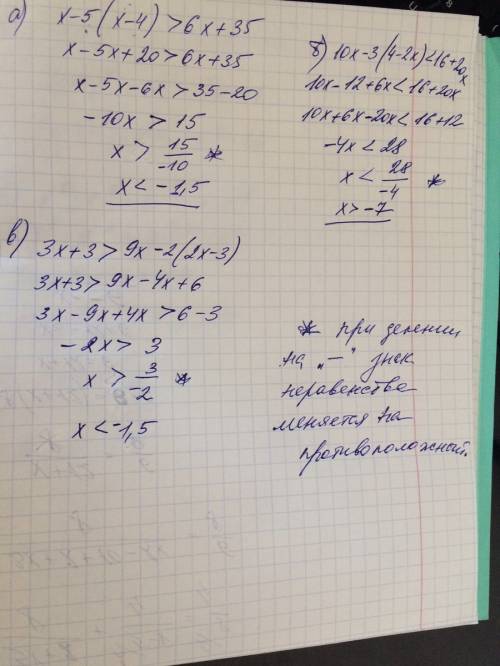 а) x-5(x-4)>6x+35
x-5x+20>6x+35
x-5x-6x>35-20
-10x > 15
x > 15/-10 *
x < -1,5
б) 10x-3(4-2x)<16+20x
10x-12+6x<16+20x
10x+6x-20x<16+12
-4x < 28
x < 28/-4 *
x > -7
в) 3x+3>9x-2(2x-3)
3x+3>9x-4x+6
3x-9x+4x>6-3
-2x> 3
x > 3/-2 *
x <-1,5
* при делении
на „-" знак
неравенства
меняется на
противоположный.